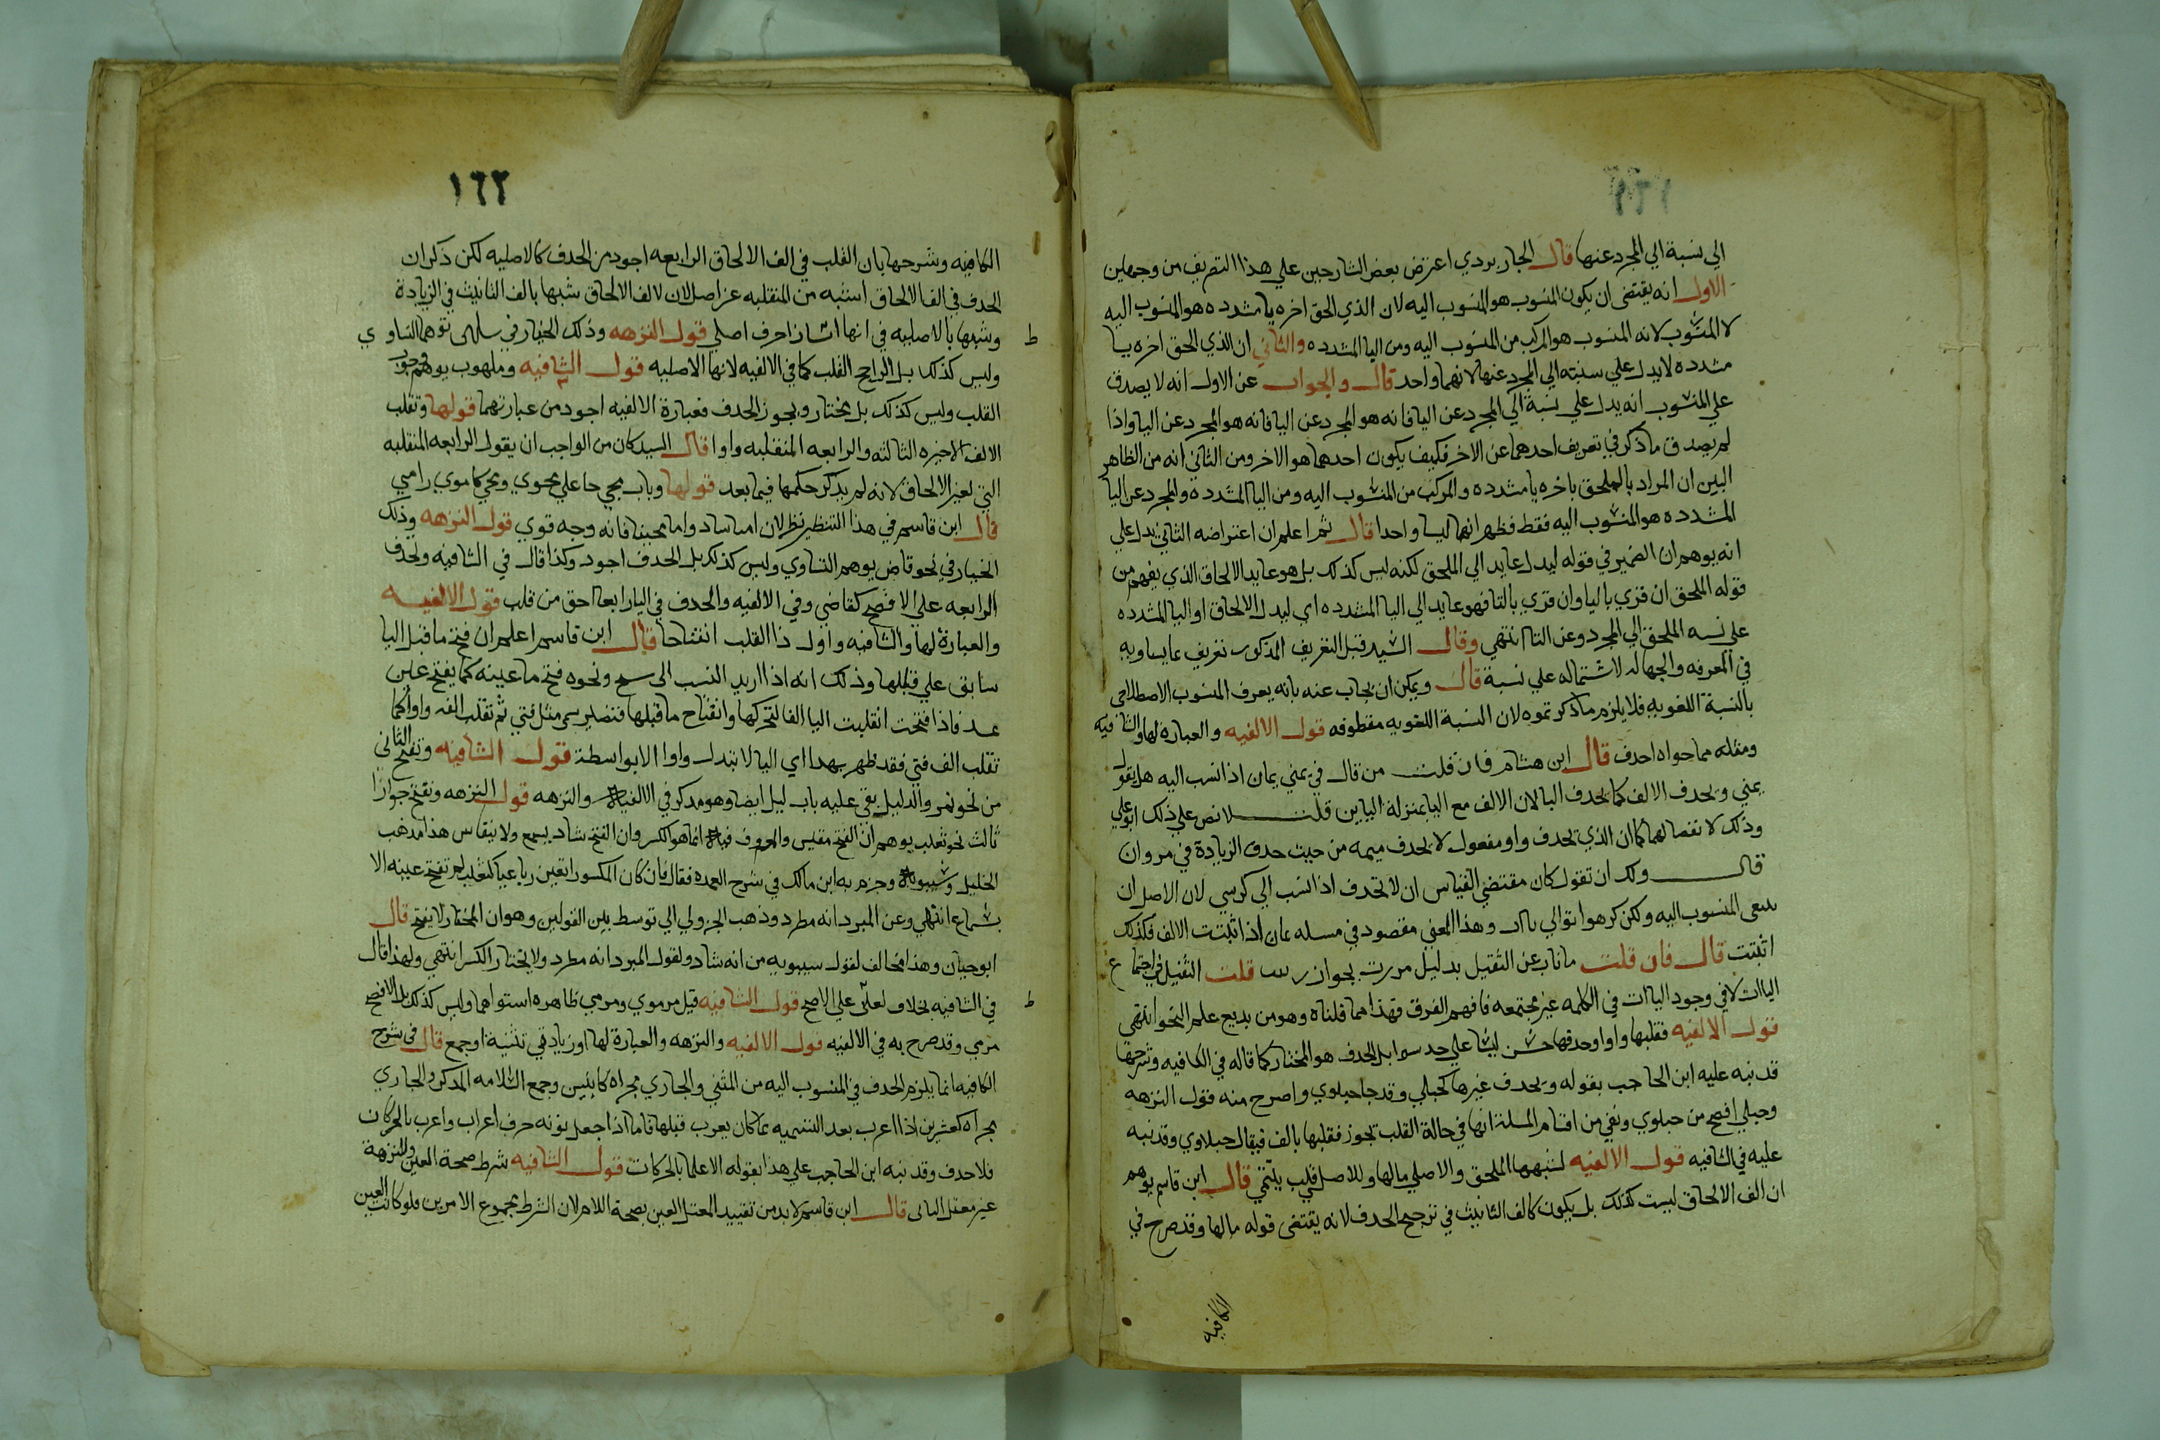 الي نسبة الي المجرد عنها قال الجاربردي اعترض بعض الشارحين علي هذا التعريف من وجهين
الاول انه يقتضي ان يكون المنسوب هو المنسوب اليه لان الذي الحق اخره يا مشدده هو المنسوب اليه
لا المنسوب لانه المنسوب هو المركب من المنسوب اليه ومن اليا المشدده والثاني ان الذي الحق اخره يا
مشدده لا يدل علي نسبته الي المجرد عنها لانهما واحد قال والجواب عن الاول انه لا يصدق
علي المنسوب انه يدل علي نسبة الي المجرد عن اليا فانه هو المجرد عن اليا فانه هو المجرد عن اليا واذا
لم يصدق ما ذكر في تعريف احدهما عن الاخر فكيف يكون احدهما هو الاخر ومن الثاني انه من الظاهر
البين ان المراد بالملحق باخره يا مشدده والمركب من المنسوب اليه ومن اليا المشدده والمجرد عن اليا
المشدده هو المنسوب اليه فقط فظهر انهما ليسا واحدا قال ثم اعلم ان اعتراضه الثاني يدل علي
انه يوهم ان الضمير في قوله ليدل عايد الي الملحق لكنه ليس كذلك بل هو عايد الالحاق الذي يفهم من
قوله الملحق ان قري باليا وان قري بالتا فهو عايد الي اليا المشدده اي ليدل الالحاق او اليا المشدده
علي نسبه الملحق الي المجرد وعن التا انتهي وقال السيد قبل التعريف المذكور تعريف بما يساويه
في المعرفه والجهاله لاشتماله علي نسبة قال ويمكن ان يجاب عنه بانه يعرف المنسوب الاصطلاحي
بالنسبة اللغويه فلا يلزم ما ذكرتموه لان النسبة اللغويه مقطوفه قول الالفيه والعباره لها والشافيه
ومثله مما حواه احذف قال ابن هشام فان قلت من قال في يمني يمان اذا نسب اليه هل يقول
يمني ويحذف الالف كما يحذف اليا لان الالف مع اليا بمنزلة اليا ين قلت لا نص علي ذلك ابو علي
وذلك لا نقضا لهما كما ان الذي يحذف واو مفعول لا يحذف ميمه من حيث حذف الزيادة في مروان
قال ولك ان تقول كان مقتضي القياس ان لا تحذف اذا نسب الي كرسي لان الاصل ان
يبقي المنسوب اليه ولكن كرهوا توالي وهذا المعني مقصود في مسله يمان اذا اثبتت الالف فكذلك
اثبتت قال فان قلت ما ناب عن الثقيل بدليل مررت بجوار قلت الثقيل في اجتماع
اليا ات لا في وجود اليا ات في الكلمه غير مجتمعه فافهم الفرق فهذا مما قلناه وهو من بديع علم النحو انتهي
قول الالفيه فقلبها واوا وحذفها حسن ليسا علي حد سوا بل الحذف هو المختار كما قاله في الكافيه وشرحها
قد نبه عليه ابن الحاجب بقوله ويحذف غيرها كحبلي وقد جا حبلوي واصرح منه قول النزهه
وحبلي افصح من حبلوي وبقي من اقسام المسلة انها في حالة القلب تجوز فقلبها بالف فيقال حبلاوي وقد نبه
عليه في الشافيه قول الالفيه لشبهها الملحق والاصلي ما لها وللاصل قلب ينتمي قال ابن قاسم يوهم
ان الف الالحاق ليست كذلك بل يكون كالف التانيث في ترجيح الحذف لانه يقتضي قوله مالها وقد صرح في
الكافيه
١٦٢
الكافيه وشرحها بان القلب في الف الالحاق الرابعه اجود من الحذف كالاصليه لكن ذكر ان
الحذف في الف الالحاق اشبه من المنقلبه عن اصل لان لالف الالحاق شبها بالف التانيث في الزيادة
وشبها بالاصليه في انها اشاز احرف اصلي قول النزهه وذلك الخيار في سلمي توهما التساوي
وليس كذلك بل الراجح القلب كما في الالفيه لانها الاصليه قول الشافيه وملهوب يوهم وجوب
القلب وليس كذلك بل مختار ويجوز الحذف فعبارة الالفيه اجود من عبارتهما قولها وتقلب
الالف الاخيره الثالثه والرابعه المنقلبه واوا قال السيد كان من الواجب ان يقول الرابعه المنقلبه
التي لغير الالحاق لانه لم يذكر حكمها فيما بعد قولها وباب محي جا علي محوي ومحي كاموي رامي
قال ابن قاسم في هذا التنظير نظر لان اما ساد واما محيينا فانه وجه قوي قول النزهه وذلك
الخيار في نحو قاض يوهم التساوي وليس كذلك بل الحذف اجود وكذا قال في الشافيه وتحذف
الرابعه علي الافصح كقاضي وفي الالفيه والحذف في اليا رابعا احق من قلب قول الالفيه
والعبارة لها والشافيه واول ذا القلب انفتاحا قال ابن قاسم اعلم ان فتح ما قبل اليا
سابق علي قلبها وذلك انه اذا اريد النسب الي شج ونحوه فتح ما عينه كما يفتح عين
نمر فاذا فتحت انقلبت اليا الفا لتحركها وانفتاح ما قبلها فتصير شجي مثل فتي ثم تقلب الفه واوا كما
تقلب الف فتي فقد ظهر بهذا اي اليا لا تبدل واوا الا بواسطة قول الشافيه وتفتح الثاني
من نحو نمر والدليل بقي عليه باب ليل ايضا وهو مذكور في الالفيه والنزهه قول النزهه وتفتح جوازا
ثالث نحو تغلب يوهم ان الفتح مقيس والمعروف فيه انما هو الكسر وان الفتح شاد يسمع ولا ينقاس هذا مذهب
الخليل وسيبويه وجزم به ابن مالك في شرح العمده فقال فان كان المكسور اتقين رباعيا كتغلب لم تفتح عينه الا
بسماع انتهي وعن المبرد انه مطرد وذهب الجزولي الي توسط بين القولين وهو ان المختار لا يفتح قال
ابو حيان وهذا مخالف لقول سيبويه من انه شاد ولقول المبرد انه مطرد ولا يختار الكسر انتهي ولهذا قال
في الشافيه بخلاف تعلي علي الاصح قول الشافيه قيل مرموي ومرمي ظاهره استواهما وليس كذلك بل الافصح
مرمي وقد صرح به في الالفيه قول الالفيه والنزهه والعبارة لها او زيادتي تثنية او جمع قال في شرح
الكافيه انما يلزم الحذف في المنسوب اليه من المثني والجاري مجراه كاثنين وجمع السلامه المذكر والجاري
مجراه كعشرين اذا اعرب بعد التسميه بما كان يعرب قبلها فاما اذا جعل نونه حرف اعراب واعرب بالحركات
فلا حذف وقد نبه ابن الحاجب علي هذا بقوله الا علما بالحركات قول الشافيه شرط صحة العين والنزهة
غير معتل الثاني قال ابن قاسم لا بد من تقييد المعتل العين بصحة اللام لان الشرط مجموع الامرين فلو كانت العين